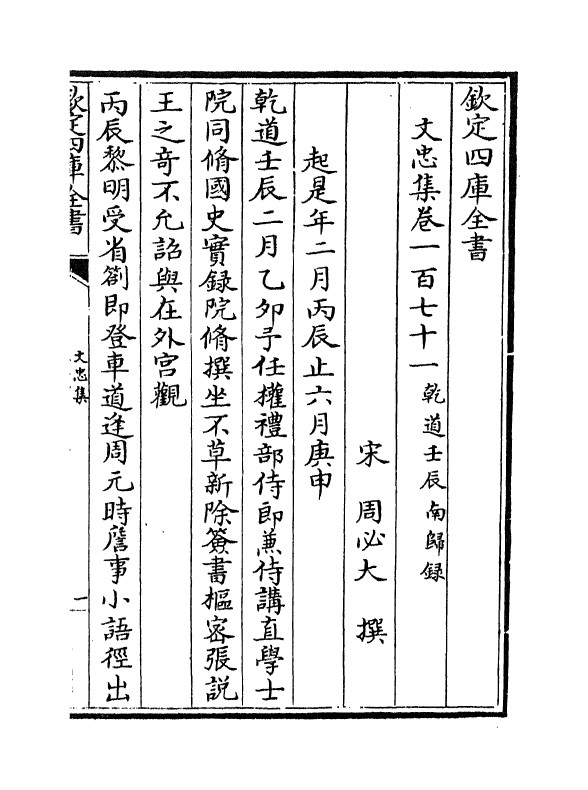 欽定四庫全書
文忠集卷一百七十一 乾道壬辰南歸録
宋 周必大 撰
起是年二月丙辰止六月庚申
乾道壬辰二月乙夘予任權禮部侍郎兼侍講直學士
院同脩國史實録院脩撰坐不草新除簽書樞密張説
王之奇不允詔與在外宫觀
丙辰黎明受省劄即登車道逢周元時詹事小語徑出
欽定四庫全書
文忠集
一